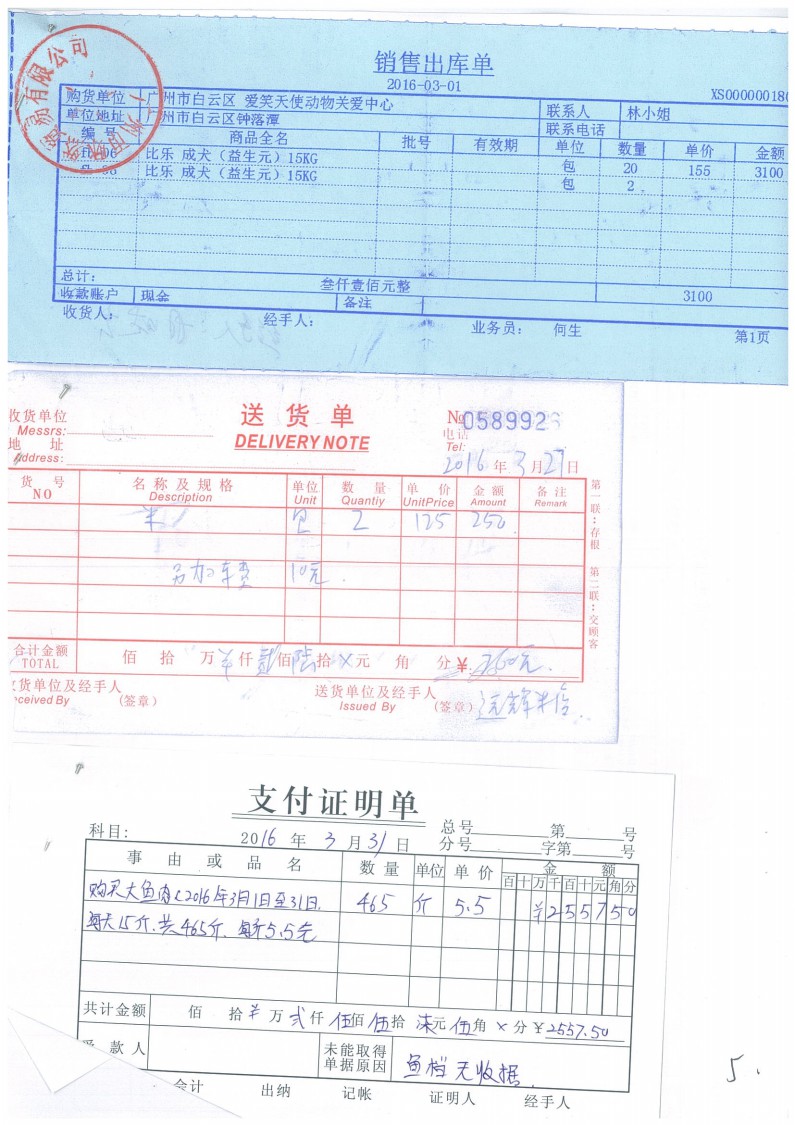 销售出库单
2016-03-01
XS000000180
购货单位 广州市白云区 爱笑天使动物关爱中心 联系人 林小姐
单位地址 广州市白云区钟落潭 联系电话
编号 商品全名 批号 有效期 单位 数量 单价 金额
比乐 成犬（益生元）15KG 包 20 155 3100
比乐 成犬（益生元）15KG 包 2
总计： 叁仟壹佰元整 3100
收款账户 现金 备注
收货人： 经手人： 业务员： 何生 第1页
易有限公司
送货单
DELIVERY NOTE
收货单位
Messrs:
地址
Address:
№ 0589923
电话
Tel:
2016年3月27日
货号 名称及规格 单位 数量 单价 金额 备注
NO Description Unit Quantiy UnitPrice Amount Remark
米 包 2 125 250
另加车费 10元
合计金额 佰拾万¥仟贰佰陆拾×元角分 ¥ 260元
TOTAL
收货单位及经手人 (签章) 送货单位及经手人 (签章)
Received By Issued By
第一联：存根 第二联：交顾客
支付证明单
科目： 2016年3月31日 总号 第 号
分号 字第 号
事由或品名 数量 单位 单价 金额
百十万千百十元角分
购买大鱼肉2016年3月1日至31日. 465 斤 5.5 ¥255750
每天15斤.共465斤.每斤5.5元
共计金额 佰拾¥万贰仟伍佰伍拾柒元伍角×分¥2557.50
受款人 未能取得单据原因 鱼档无收据.
会计 出纳 记帐 证明人 经手人
5.